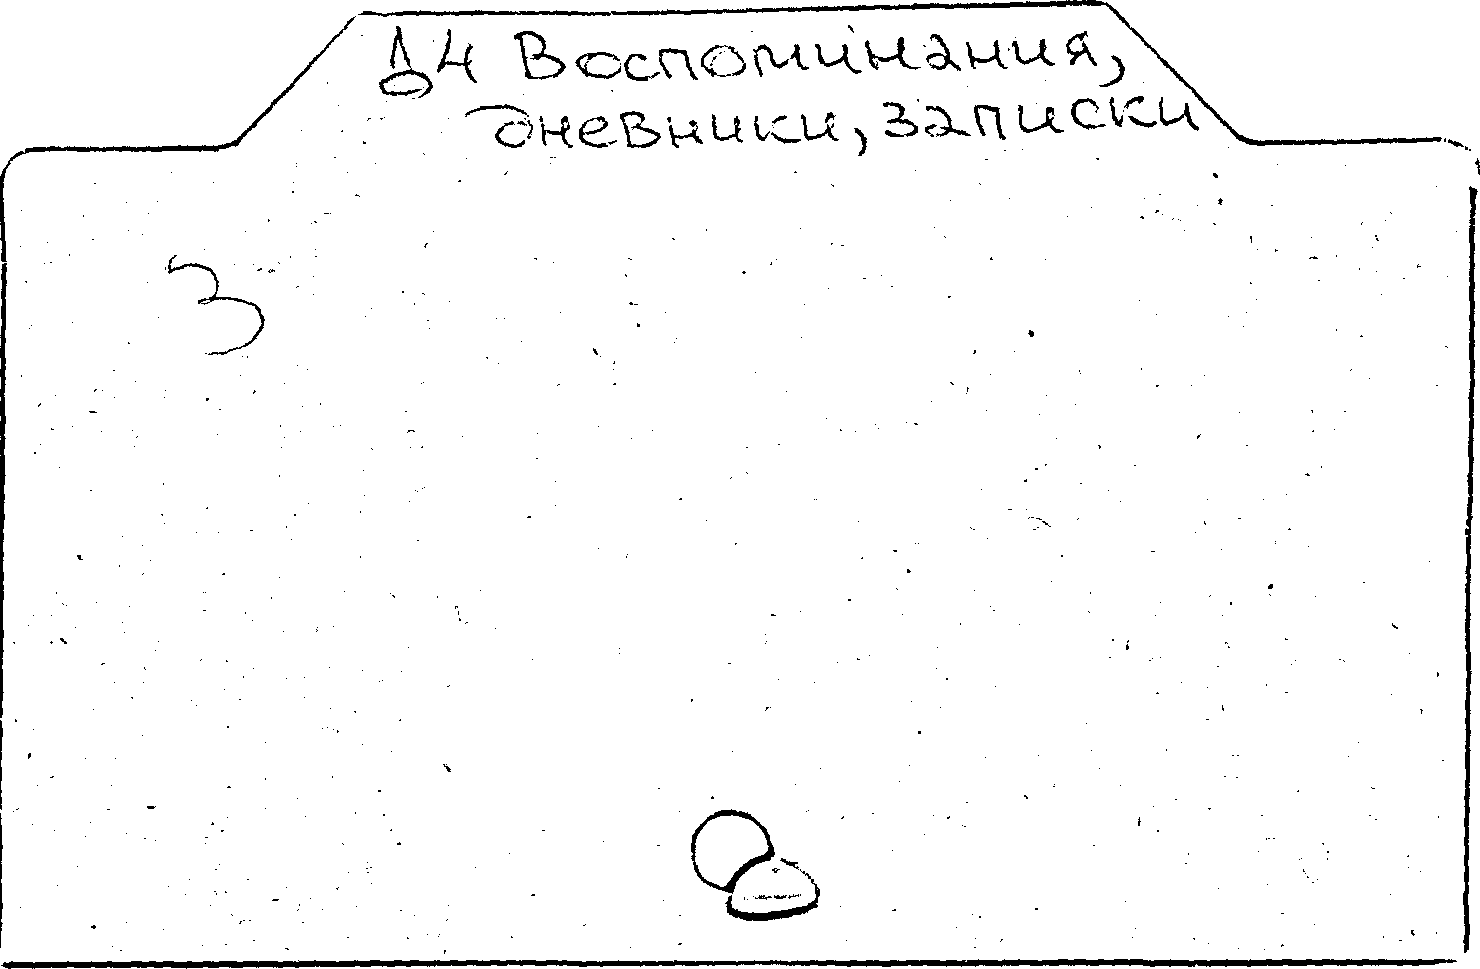 Д4 Воспоминания,
дневники, записки
3